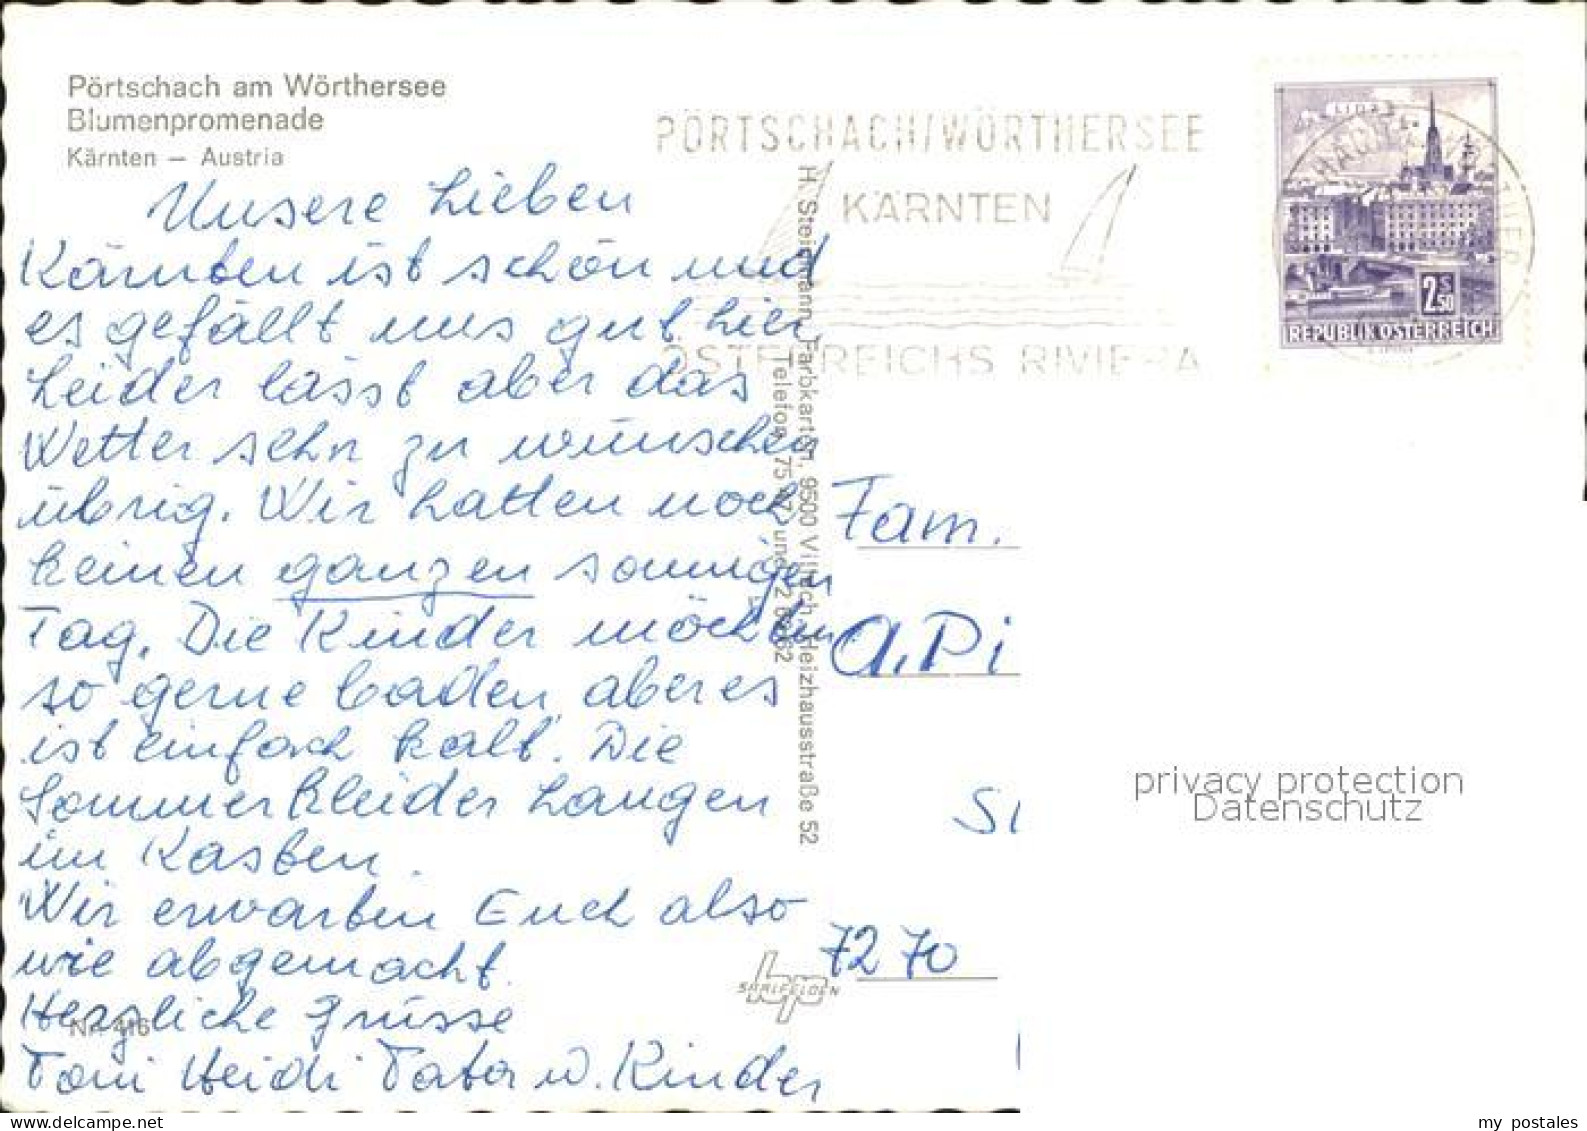 Pörtschach am Wörthersee
Blumenpromenade
Kärnten – Austria
PÖRTSCHACH/WÖRTHERSEE
KÄRNTEN
ÖSTERREICHS RIVIERA
LINZ
2 S 50
REPUBLIK ÖSTERREICH
Unsere Lieben
Kärnten ist schön und
es gefällt uns gut hier
Leider lässt aber das
Wetter sehr zu wünschen
übrig. Wir hatten noch
keinen ganzen sonnigen
Tag. Die Kinder möchten
so gerne baden, aber es
ist einfach kalt. Die
Sommerkleider hangen
im Kasten.
Wir erwarten Euch also
wie abgemacht.
Herzliche Grüsse
Toni Heidi Tata u. Kinder
Nr. 416
H. Steichmann, Farbkarten, 9500 Villach, Heizhausstraße 52
Telefon 75 47 und
SAALFELDEN
Fam.
A. Pi
7270
privacy protection
Datenschutz
my postales